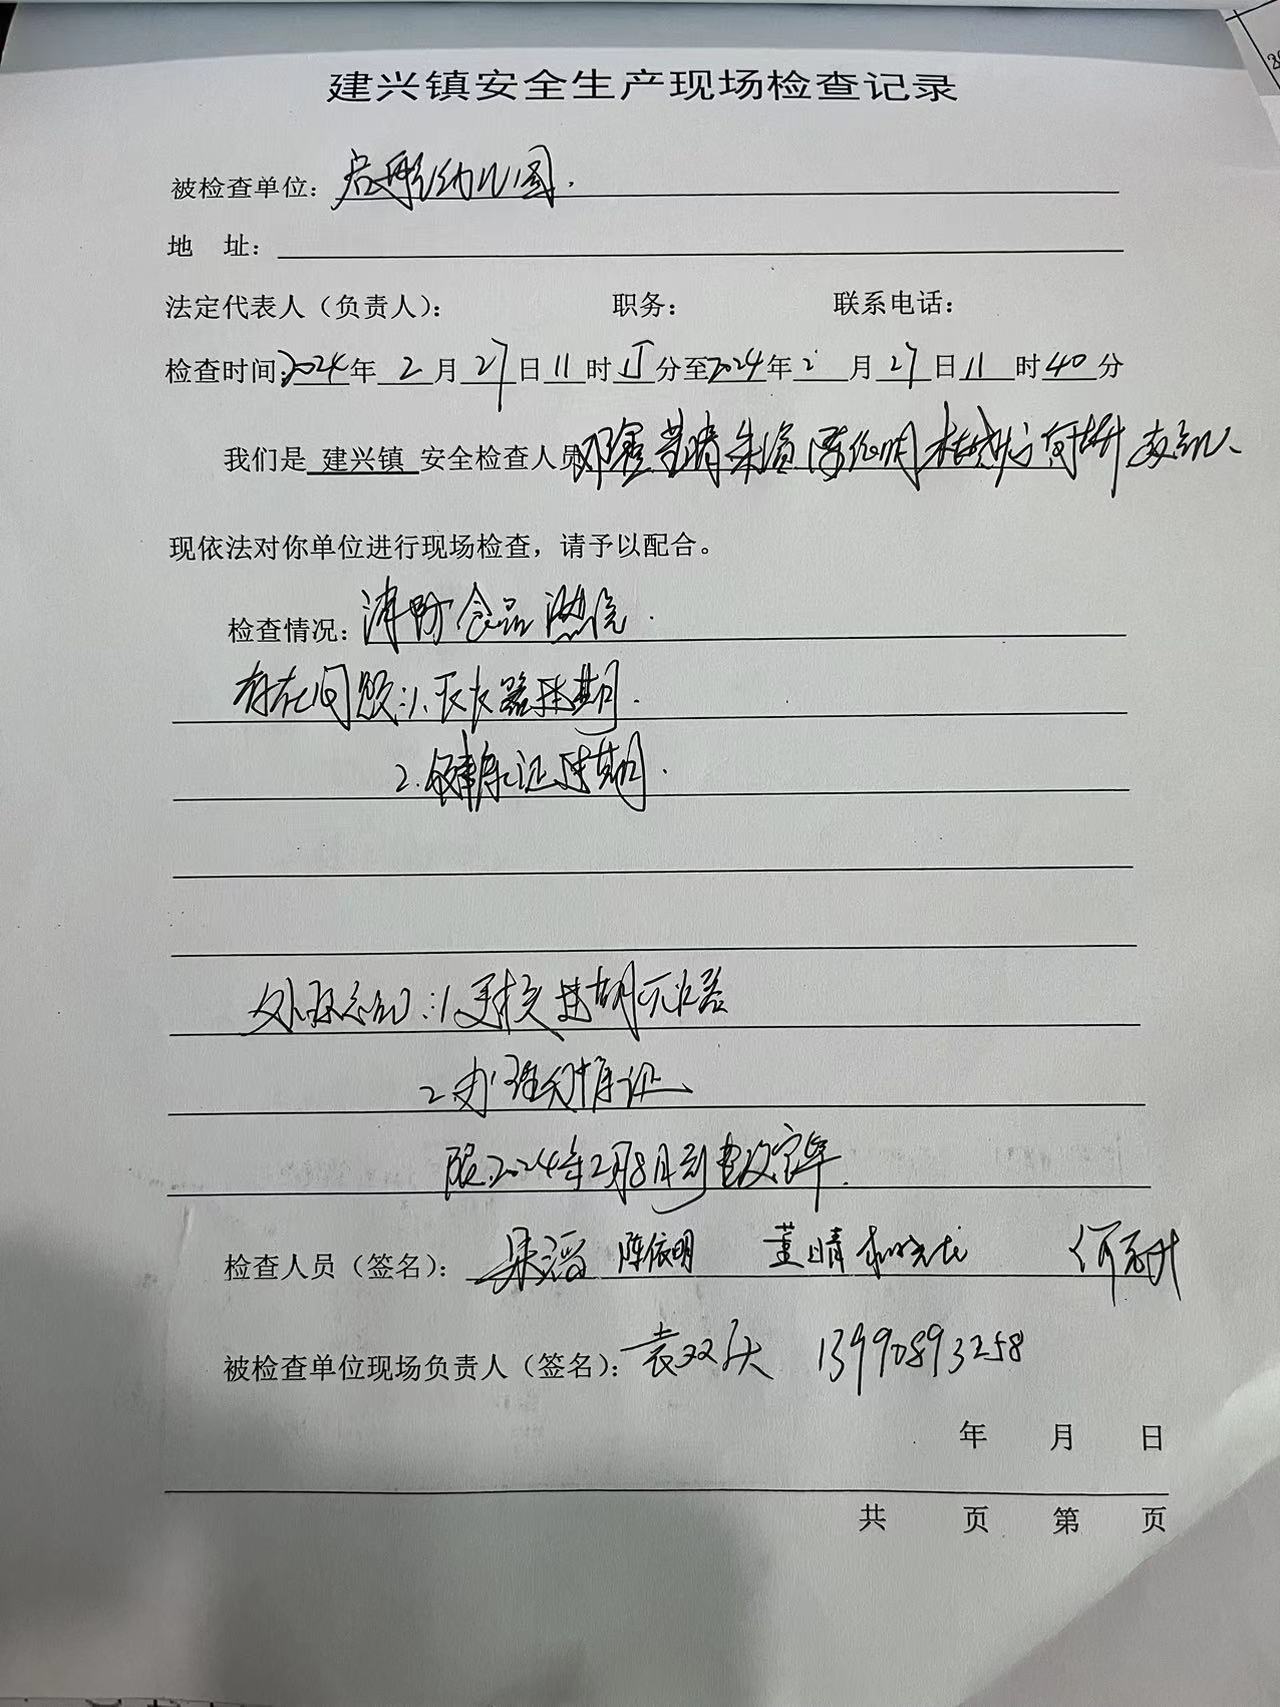 建兴镇安全生产现场检查记录
被检查单位：启彤幼儿园.
地 址：
法定代表人（负责人）： 职务： 联系电话：
检查时间：2024年 2 月 27 日 11 时 15 分至2024年 2 月 27 日 11 时 40 分
我们是 建兴镇 安全检查人员 邓 董晴 陈依明
现依法对你单位进行现场检查，请予以配合。
检查情况：消防 食品 燃气.
存在问题：1.灭火器过期.
2.健康证过期.
处理意见：1.更换过期灭火器
2.办理健康证
限2024年2月8日前整改完毕.
检查人员（签名）： 陈依明 董晴
被检查单位现场负责人（签名）：袁双 13990893258
年 月 日
共 页 第 页